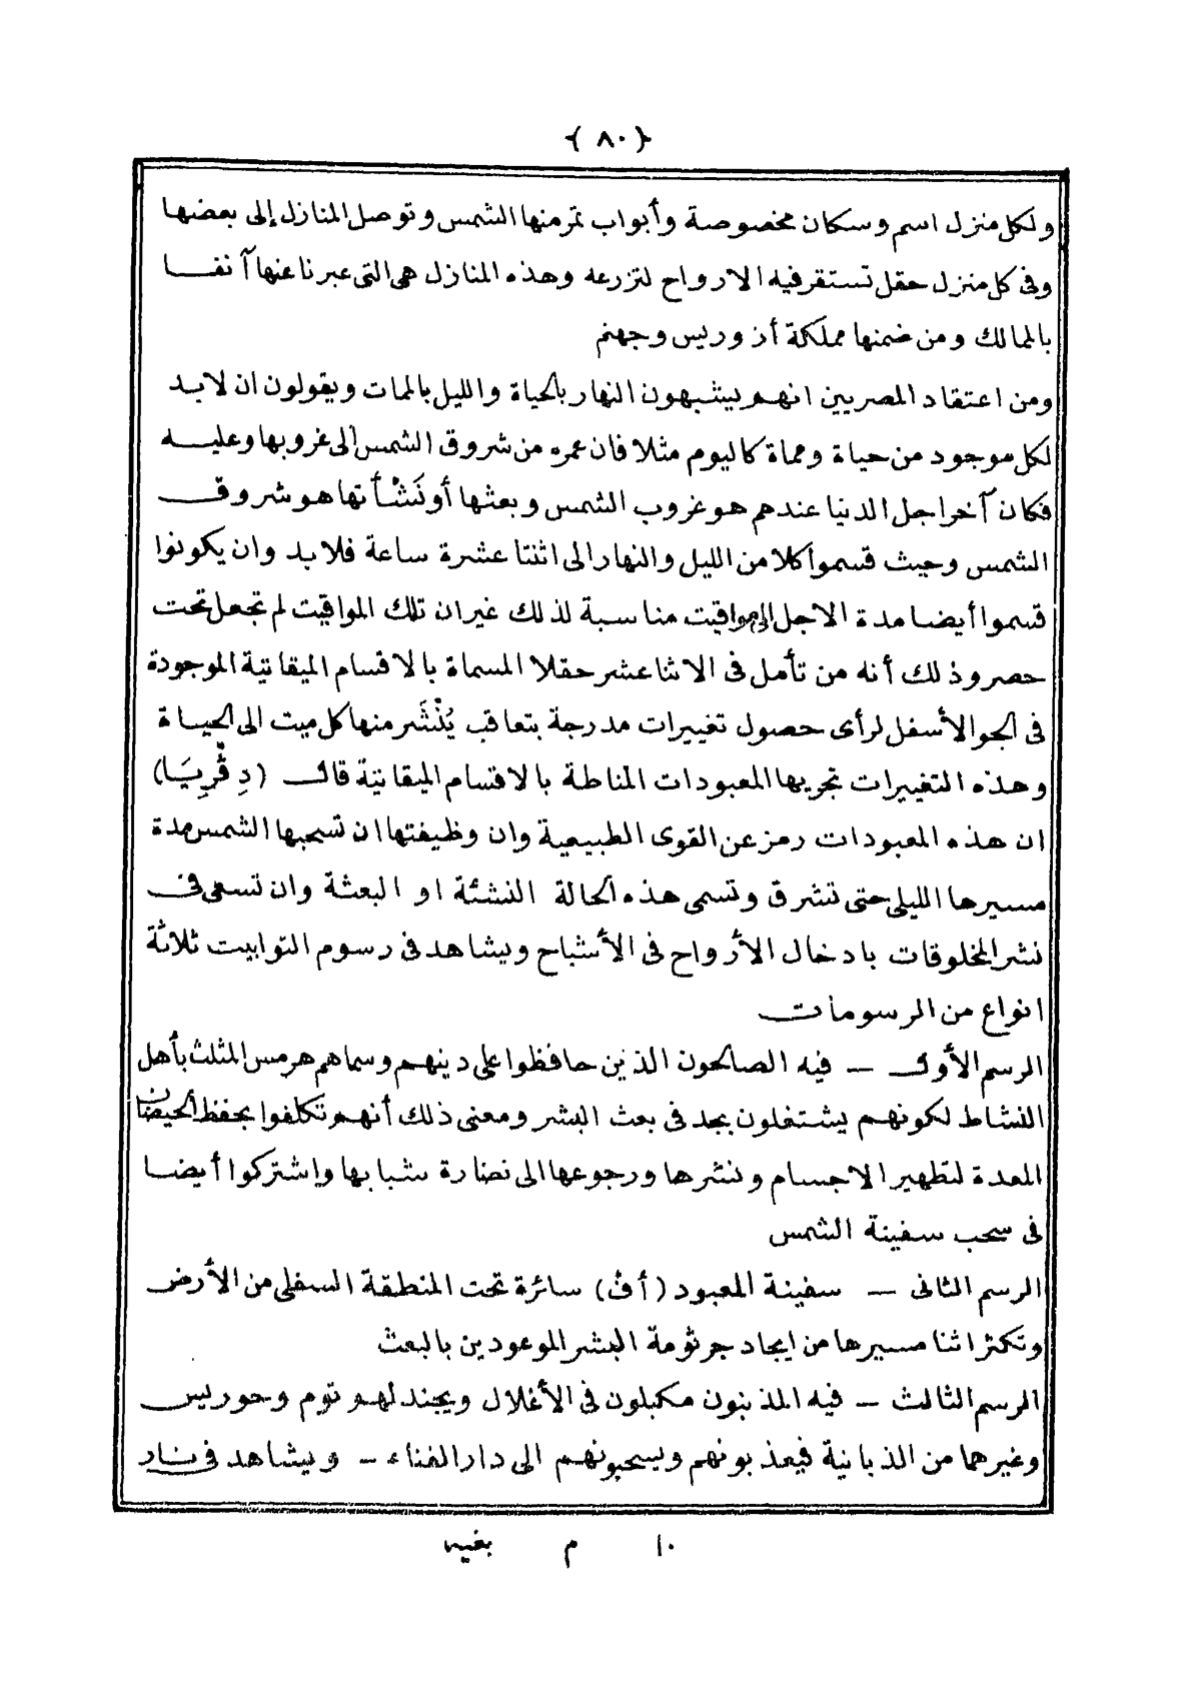 {٨٠}
ولكل منزل اسم وسكان مخصوصة وأبواب تمر منها الشمس وتوصل المنازل إلى بعضها
وفى كل منزل حقل تستقر فيه الارواح لتزرعه وهذه المنازل هى التى عبرنا عنها آنفا
بالممالك ومن ضمنها مملكة أزوريس وجهنم
ومن اعتقاد المصريين انهم يشبهون النهار بالحياة والليل بالممات ويقولون ان لابد
لكل موجود من حياة ومماة كاليوم مثلا فان عمره من شروق الشمس الى غروبها وعليه
فكان آخر اجل الدنيا عندهم هو غروب الشمس وبعثها أو نَشْأتها هو شروق
الشمس وحيث قسموا كلا من الليل والنهار الى اثنتا عشرة ساعة فلا بد وان يكونوا
قسموا أيضا مدة الاجل الى مواقيت مناسبة لذلك غير ان تلك المواقيت لم تجعل تحت
حصر وذلك أنه من تأمل فى الاثنا عشر حقلا المسماة بالاقسام الميقاتية الموجودة
فى الجو الأسفل لرأى حصول تغييرات مدرجة بتعاقب يُنْشَر منها كل ميت الى الحياة
وهذه التغييرات تجريها المعبودات المناطة بالاقسام الميقاتية قال (دِفْرِيَا)
ان هذه المعبودات رمز عن القوى الطبيعية وان وظيفتها ان تسحبها الشمس مدة
مسيرها الليلى حتى تشرق وتسمى هذه الحالة النشئة او البعثة وان تسعى فى
نشر المخلوقات بادخال الأرواح فى الأشباح ويشاهد فى رسوم التوابيت ثلاثة
انواع من الرسومات
الرسم الأول — فيه الصالحون الذين حافظوا على دينهم وسماهم هرمس المثلث بأهل
النشاط لكونهم يشتغلون بجد فى بعث البشر ومعنى ذلك أنهم تكلفوا بحفظ الحيضان
المعدة لتطهير الاجسام ونشرها ورجوعها الى نضارة شبابها واشتركوا أيضا
فى سحب سفينة الشمس
الرسم الثانى — سفينة المعبود (أف) سائرة تحت المنطقة السفلى من الأرض
وتكثر اثنا مسيرها من ايجاد جرثومة البشر الموعودين بالبعث
الرسم الثالث — فيه المذنبون مكبلون فى الأغلال ويجند لهم توم وحوريس
وغيرهما من الذبانية فيعذبونهم ويسحبونهم الى دار الفناء — ويشاهد فى نار
١٠ م بغيه